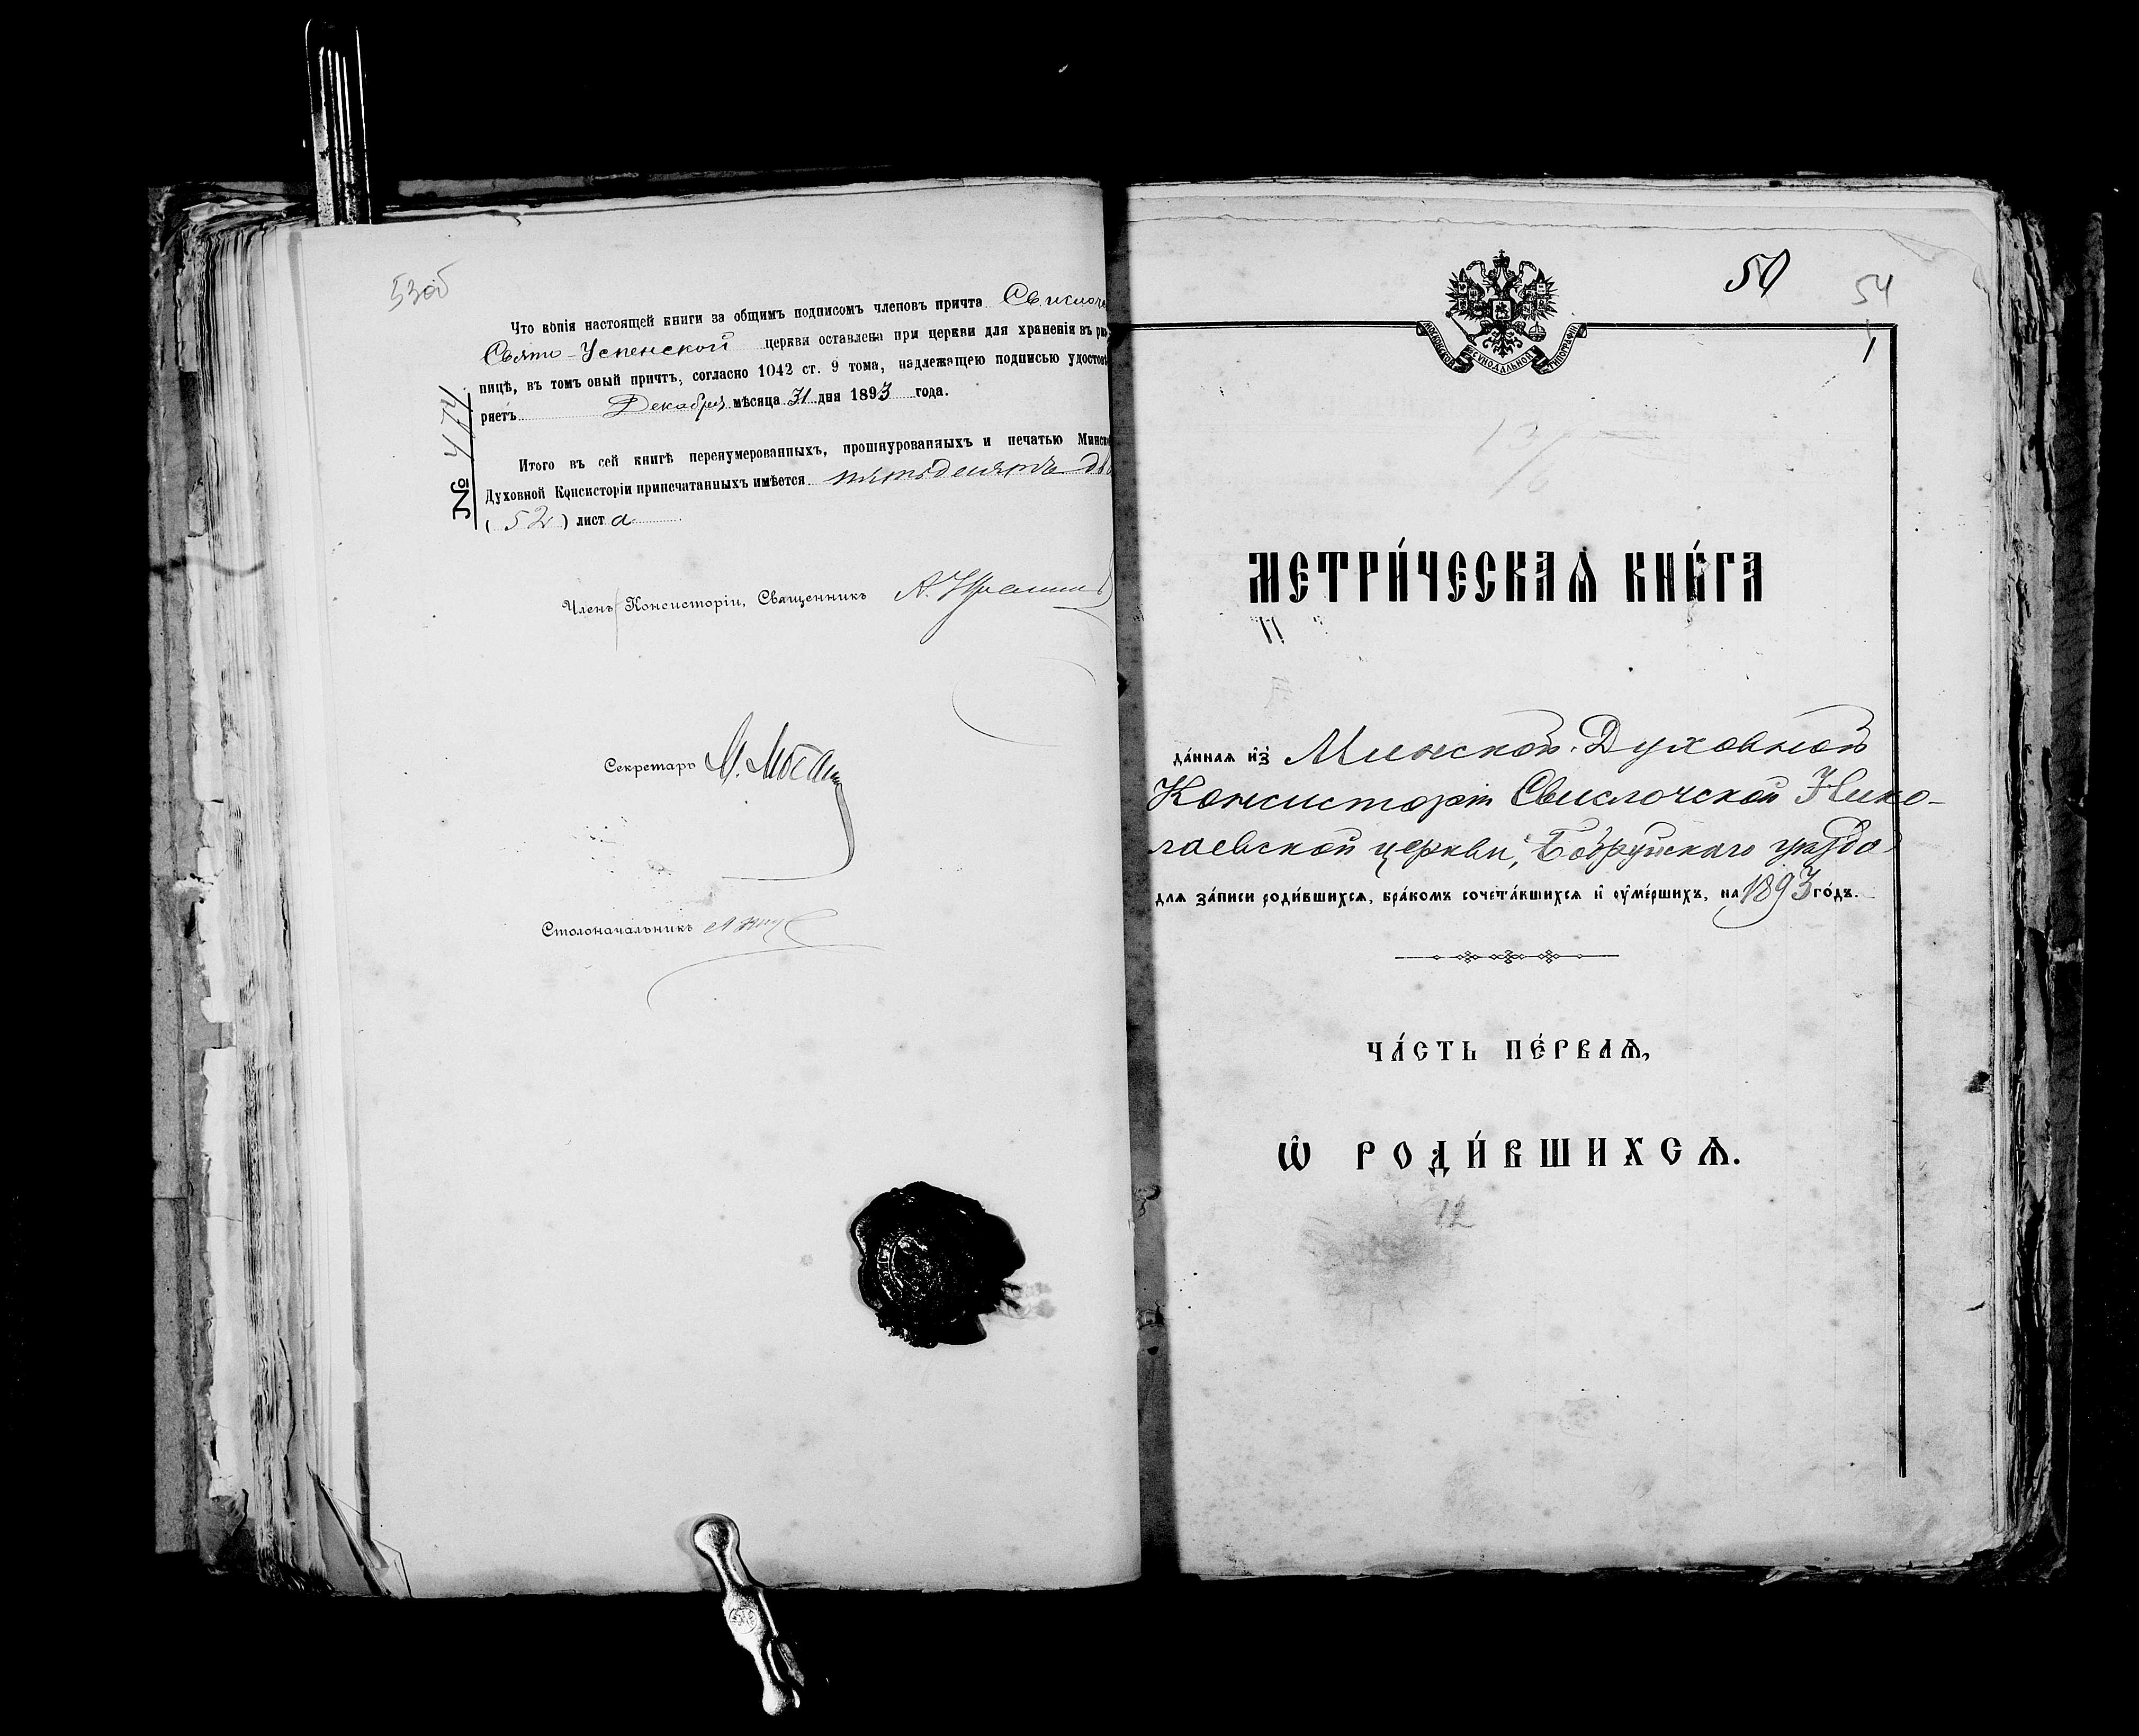 53об
Что копія настоящей книги за общимъ подписомъ членовъ причта Свислоч
Свято-Успенской церкви оставлена при церкви для храненія въ риз
ницѣ, въ томъ оный причтъ, согласно 1042 ст. 9 тома, надлежащею подписью удостовѣ
ряетъ Декабря мѣсяца 31 дня 1893 года.
Итого въ сей книгѣ перенумерованныхъ, прошнурованныхъ и печатью Минск
Духовной Консисторіи припечатанныхъ имѣется пятьдесятъ два
(52) листа
№ 474
Членъ Консисторіи, Священникъ
Секретарь
Столоначальникъ
50
54
1
МОСКОВСКОЙ СѴНОДАЛЬНОЙ ТИПОГРАФІИ
МЕТРИ́ЧЕСКАѦ КНИ́ГА
да́ннаѧ и҆з̾ Минской Духовной
Консисторіи Свислочской Нико-
лаевской церкви, Бобруйскаго уѣзда
длѧ за́писи роди́вшихсѧ, бра́комъ сочета́вшихсѧ и҆ ᲂу҆ме́ршихъ, на 1893 го́дъ.
ЧА́СТЬ ПЕ́РВАѦ,
Ѽ РОДИ́ВШИХСѦ.
12